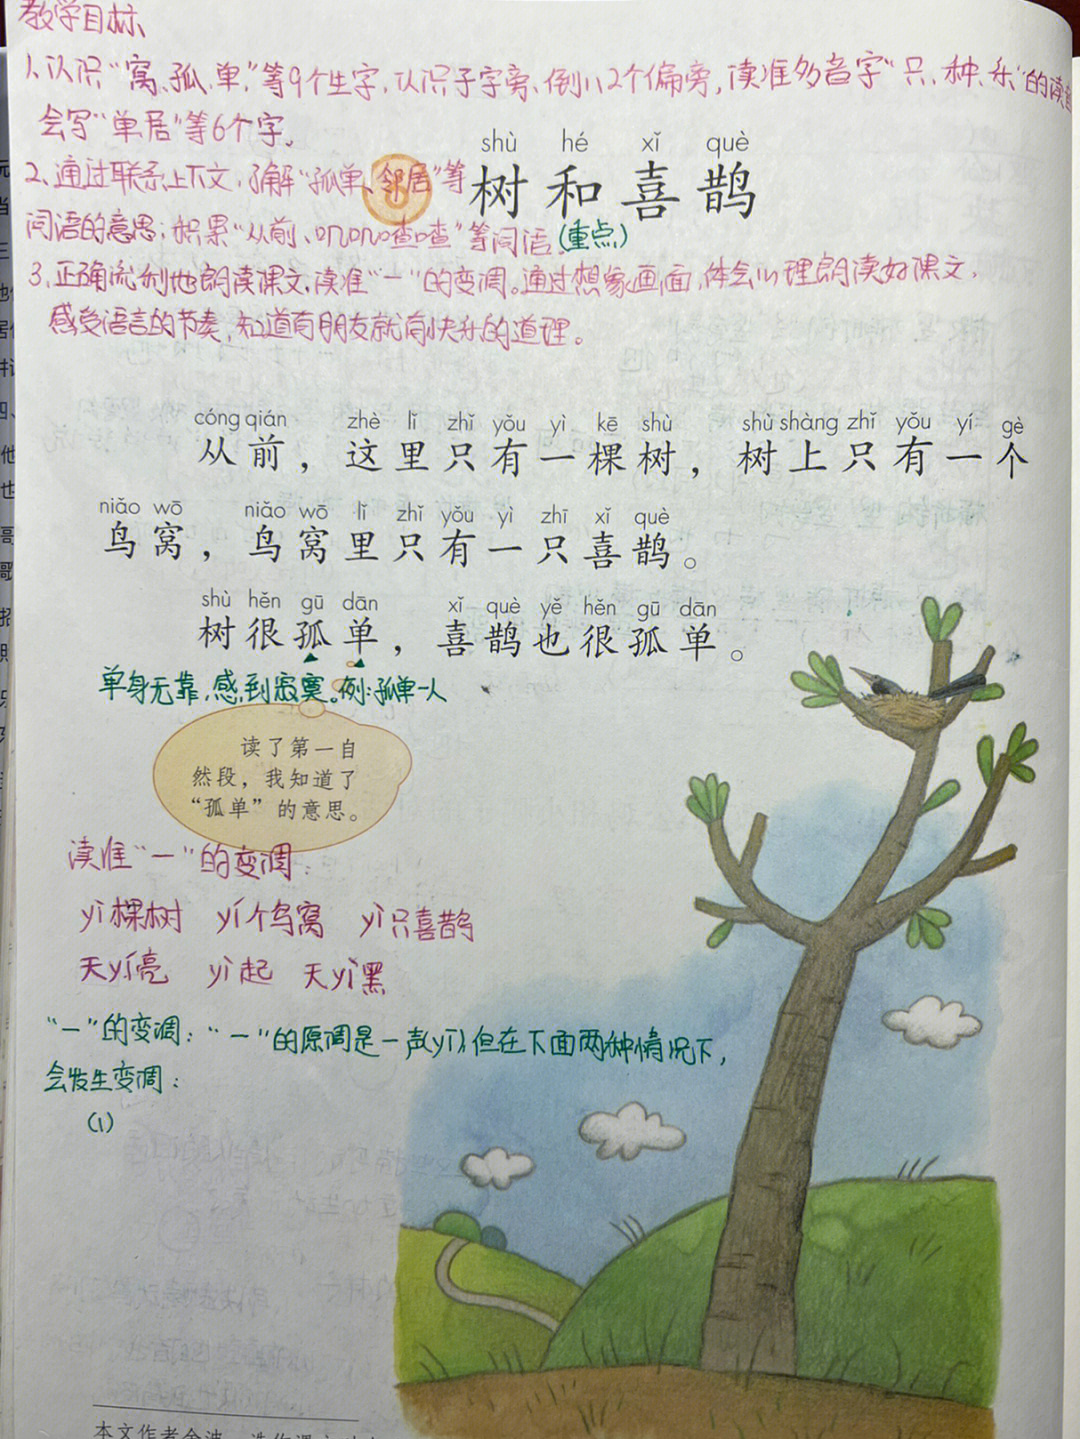 教学目标
1、认识“窝、孤、单”等9个生字,认识子字旁、倒八2个偏旁,读准多音字“只、种、乐”的读音
会写“单居”等6个字。
2、通过联系上下文,了解“孤单、邻居”等
词语的意思;积累“从前、叽叽喳喳”等词语。(重点)
3、正确流利地朗读课文,读准“一”的变调。通过想象画面,体会心理朗读好课文,
感受语言的节奏,知道有朋友就有快乐的道理。
shù hé xǐ què
树和喜鹊
cóng qián zhè lǐ zhǐ yǒu yì kē shù shù shàng zhǐ yǒu yí gè
从前,这里只有一棵树,树上只有一个
niǎo wō niǎo wō lǐ zhǐ yǒu yì zhī xǐ què
鸟窝,鸟窝里只有一只喜鹊。
shù hěn gū dān xǐ què yě hěn gū dān
树很孤单,喜鹊也很孤单。
单身无靠,感到寂寞。例:孤单一人
读了第一自
然段,我知道了
“孤单”的意思。
读准“一”的变调:
yì棵树 yí个鸟窝 yì只喜鹊
天yí亮 yì起 天yì黑
“一”的变调:“一”的原调是一声(yī),但在下面两种情况下,
会发生变调:
(1)
本文作者金波